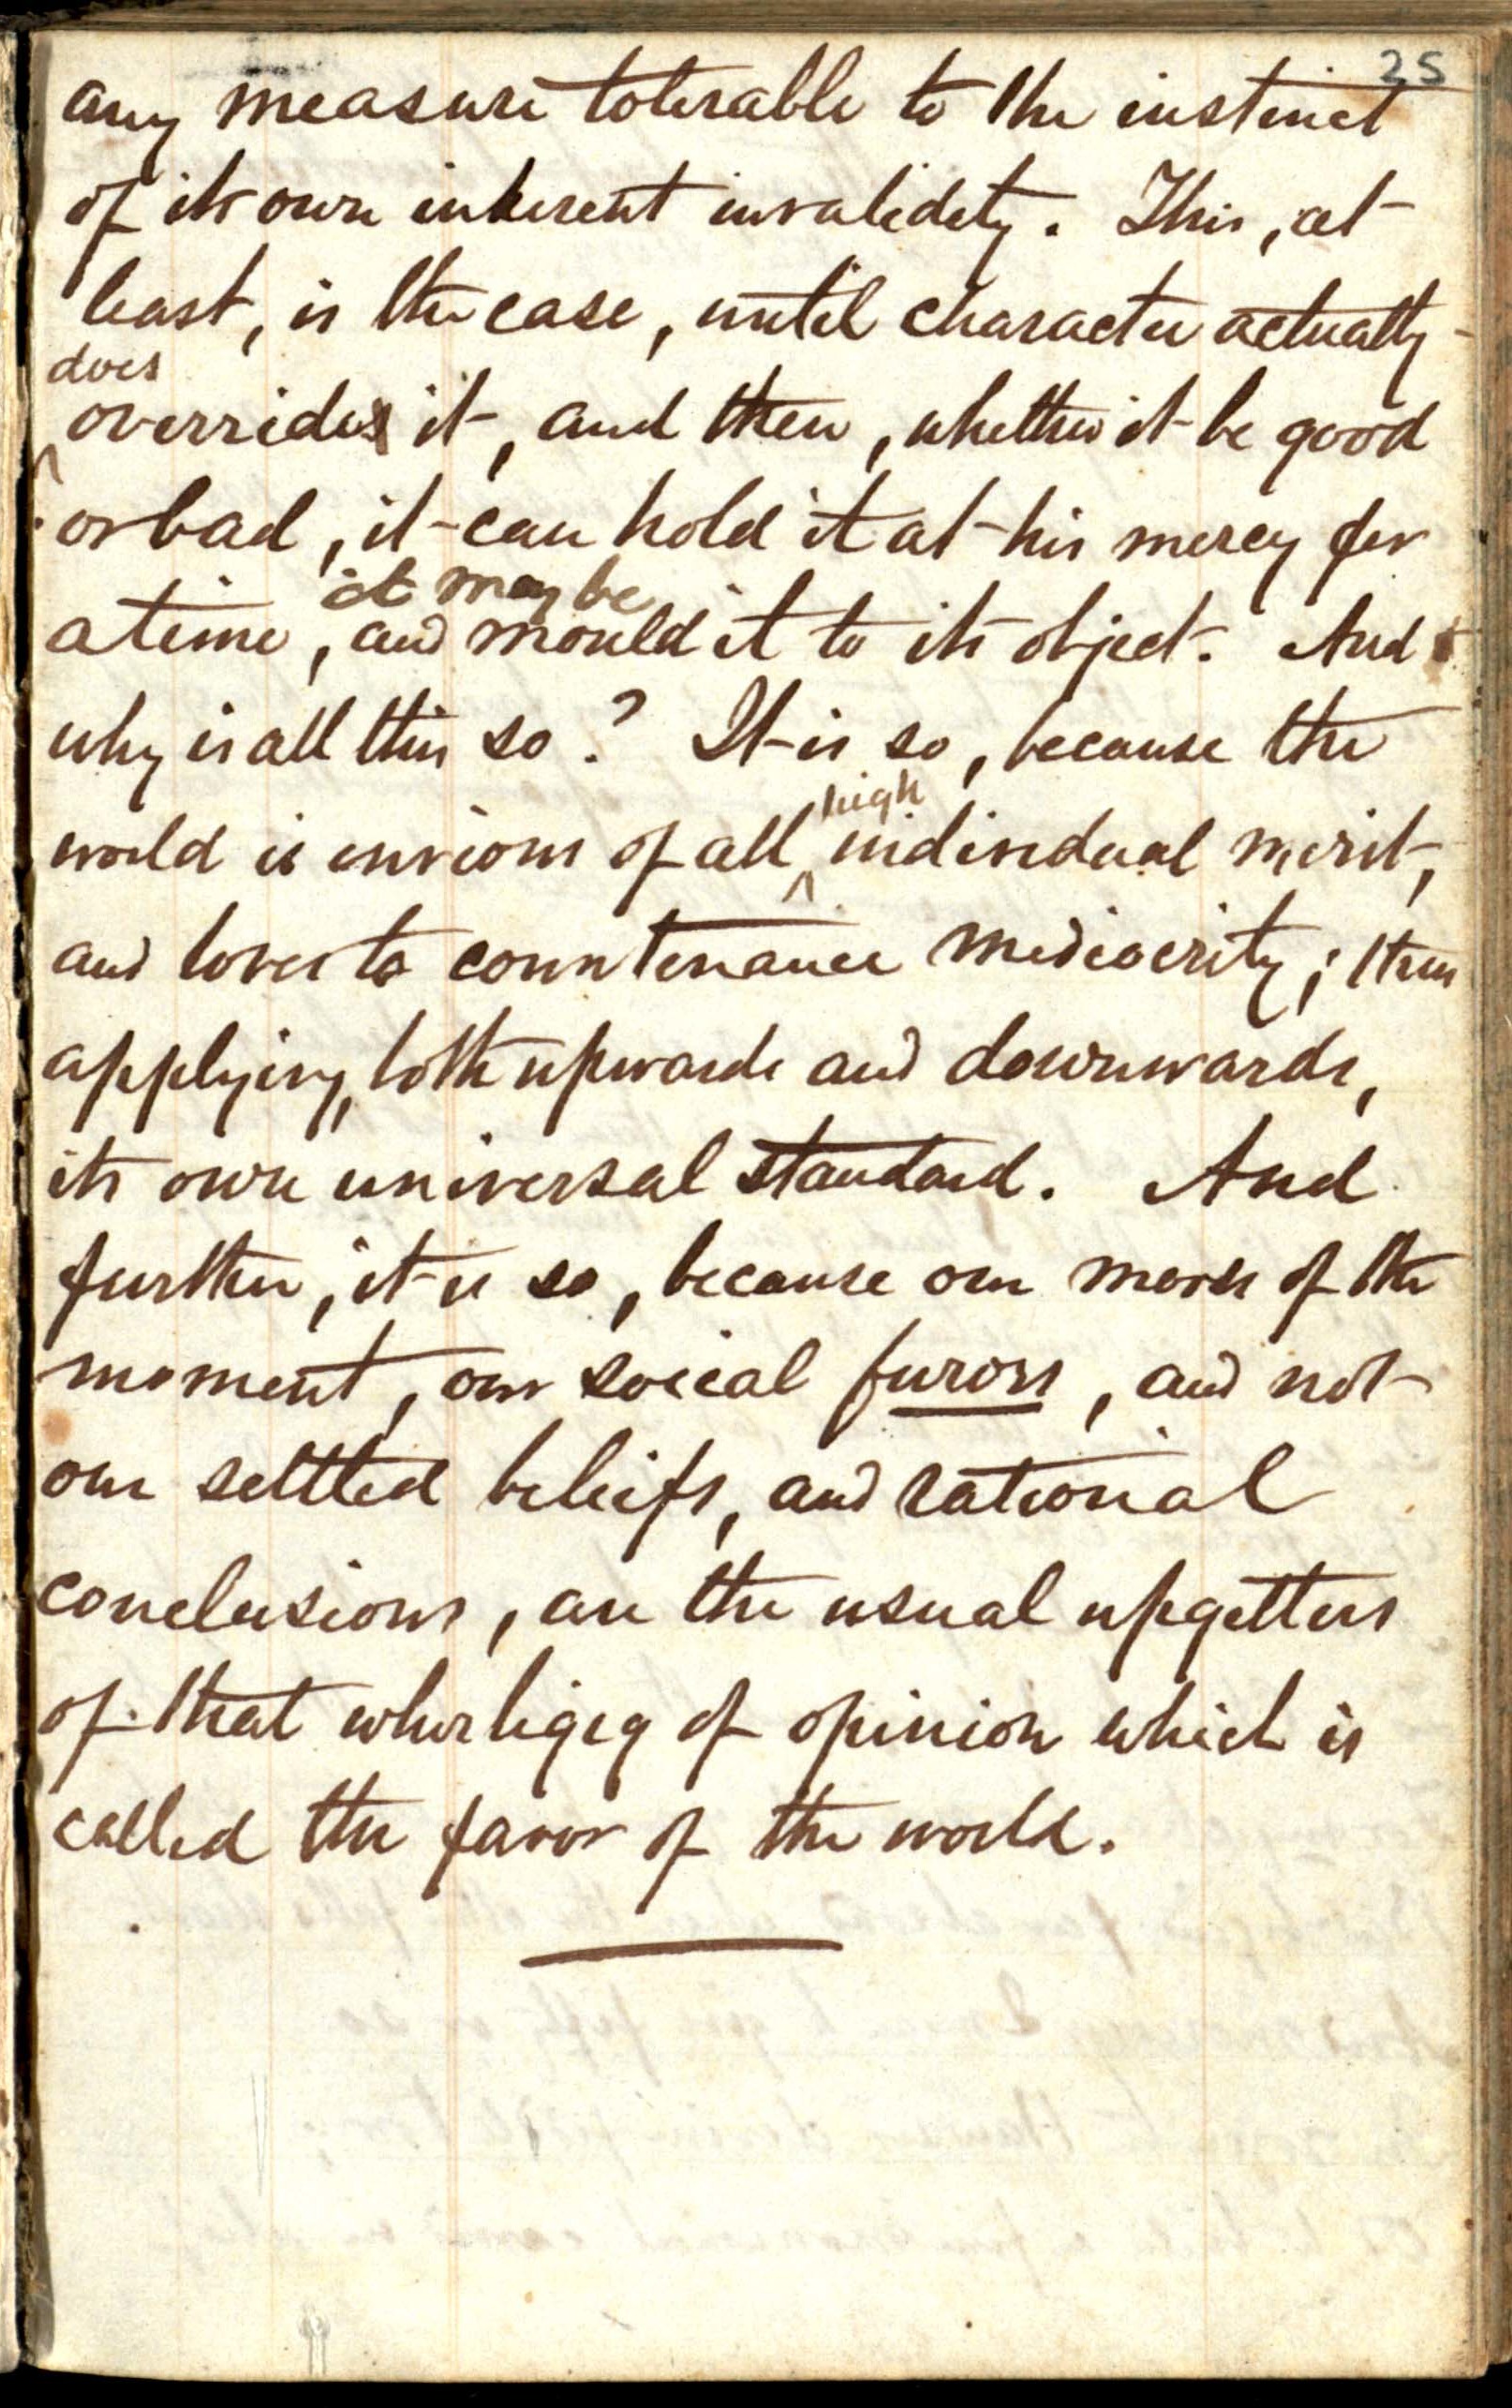 25
any measure tolerable to the instinct
of its own inherent invalidity. This, at
least, is the case, until character actually
does
override it, and then, whether it be good
or bad, it can hold it at his mercy for
it may be
a time, and mould it to its object. And
why is all this so? It is so, because the
high
world is envious of all individual merit,
and loves to countenance mediocrity; thus
applying, both upwards and downwards,
its own universal standard. And
further, it is so, because our mores of the
moment, our social furors, and not
our settled beliefs, and rational
conclusions, are the usual upgetters
of that whirligig of opinion which is
called the favor of the world.